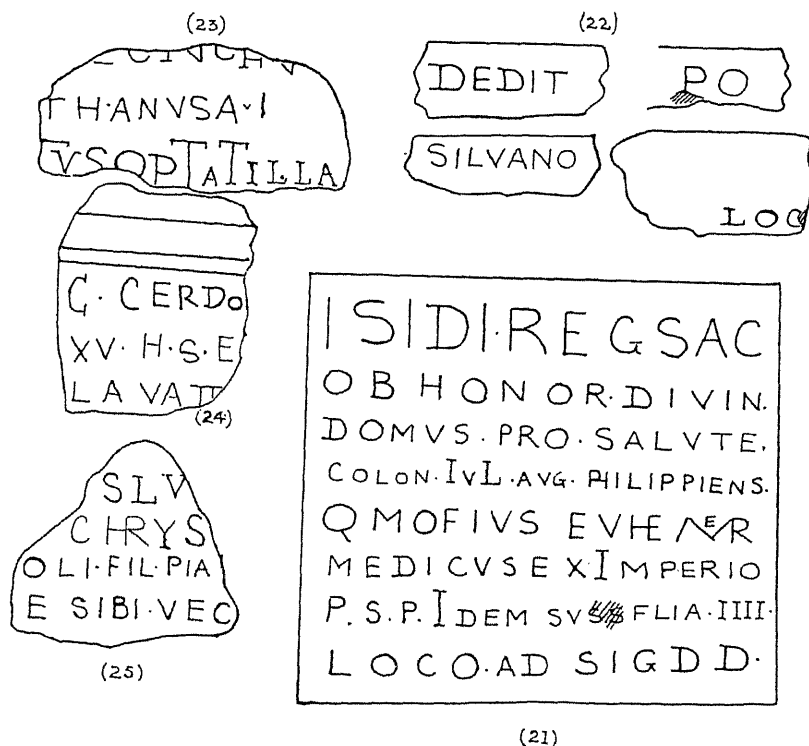 (23)
TH·ANVSA·I
TVSOPTATILLA
(22)
DEDIT
PO
SILVANO
LOC
C· CERDO
XV· H·S·E
LAVATI
(24)
SLV
CHRYS
OLI·FIL·PIA
E SIBI·VEC
(25)
ISIDI·REGSAC
OB HONOR·DIVIN·
DOMVS·PRO·SALVTE·
COLON·IVL·AVG·PHILIPPIENS·
QMOFIVS EVHEMER
MEDICVSEX·IMPERIO
P.S.P.IDEM SV FLIA·IIII·
LOCO·AD SIGDD·
(21)